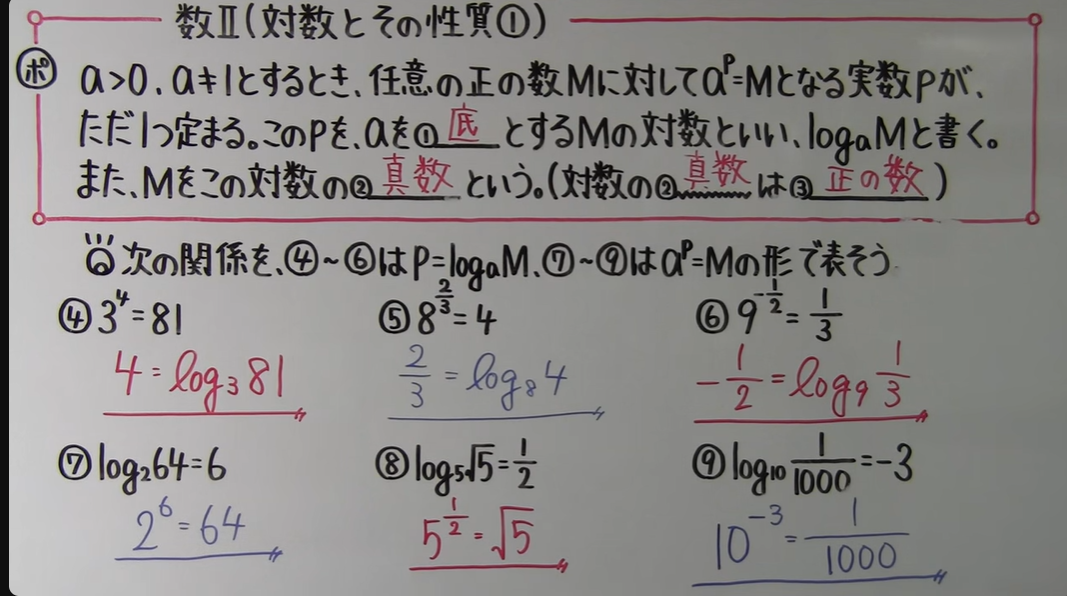 数Ⅱ(対数とその性質①)
ポ
a>0、a≠1とするとき、任意の正の数Mに対してa^p=Mとなる実数pが、
ただ1つ定まる。このpを、aを①底とするMの対数といい、log_a Mと書く。
また、Mをこの対数の②真数という。(対数の②真数は③正の数)
次の関係を、④~⑥はP=log_a M、⑦~⑨はa^p=Mの形で表そう
④3^4=81 ⑤8^(2/3)=4 ⑥9^(-1/2)=1/3
4=log_3 81 2/3=log_8 4 -1/2=log_9 1/3
⑦log_2 64=6 ⑧log_5 √5=1/2 ⑨log_10 1/1000=-3
2^6=64 5^(1/2)=√5 10^(-3)=1/1000